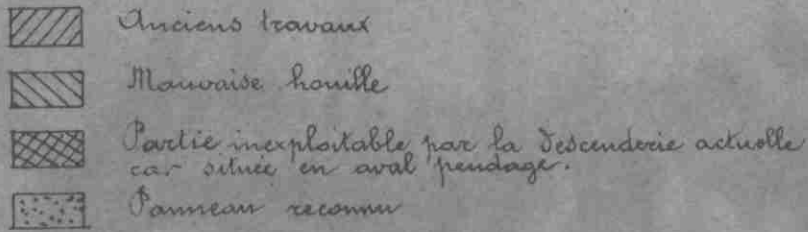 Anciens travaux
Mauvaise houille
Partie inexploitable par la descenderie actuelle
car située en aval pendage.
Panneau reconnu